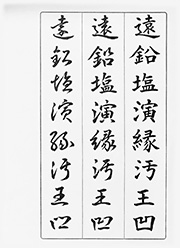 遠鉛塩演縁汚王凹
遠鉛塩演縁汚王凹
遠鉛塩演縁汚王凹